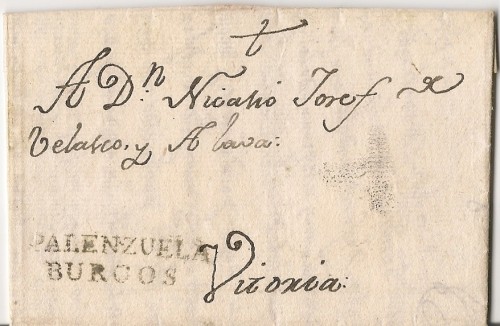 A D.n Nicasio Josef de
Velasco, y Alava:
PALENZUELA
BURGOS
Vitoria: